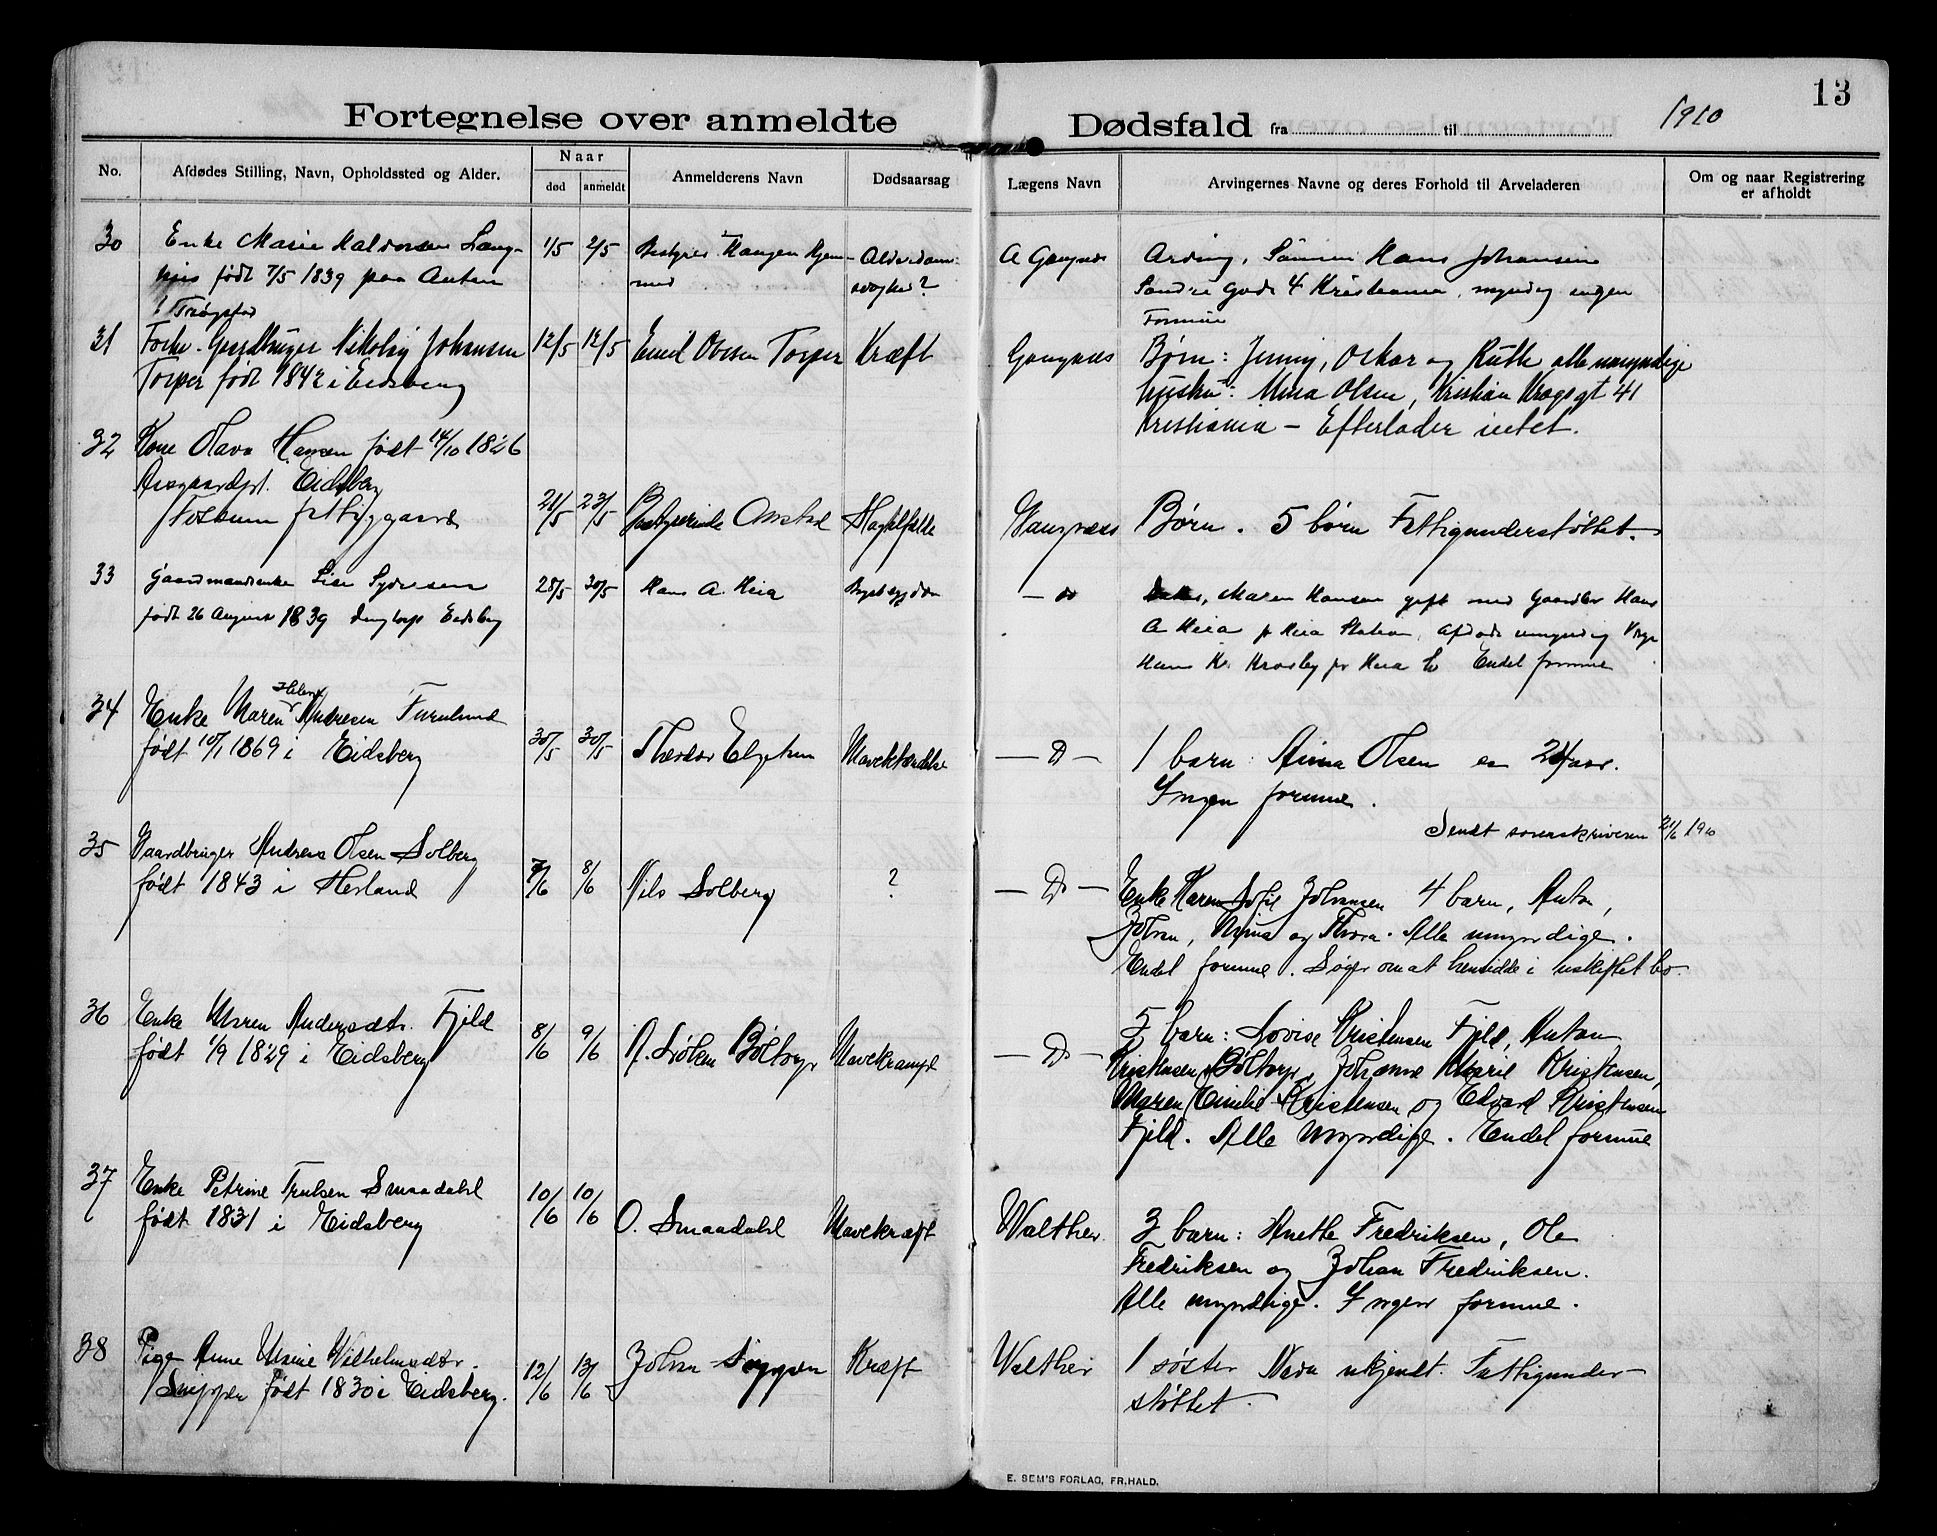 13
Fortegnelse over anmeldte Dødsfald fra til 1910
No. Afdødes Stilling, Navn, Opholdssted og Alder. Naar død anmeldt Anmelderens Navn Dødsaarsag Lægens Navn Arvingernes Navne og deres Forhold til Arveladeren Om og naar Registrering er afholdt
30 Enke Marie Halvorsen 1/5 2/5 Bestyrer A Arving, Sønnen Hans Johansen
født 7/5 1839 paa svaghed? Søndre Gade 4 Kristiania, myndig ingen
i Trøgstad Formue
31 Forhv. Gaardbruger Nikolai Johansen 12/5 12/5 Emil Olesen Torper Kræft Børn: Jenny, Oskar og Ruth alle umyndige
Torper født 1842 i Eidsberg Hustru: Mina Olsen, Kristian Krogsgt 41
Kristiania – Efterlader intet.
32 Kone Olava Hansen født 14/10 1826
Eidsberg
Folkum fattiggaard 21/5 23/5 Bestyrerinde Slagtilfælde Børn. 5 børn Fattigunderstøttet.
33 Gaardmandsenke Lise Syversen 28/5 30/5 Hans A. Heia Brystsygdom — do Maren Hansen gift med Gaardbr Hans
født 26 August 1839 Eidsberg A Heia pr Heia Station, Afdøde umyndig Værge
Hans Kr. Krosby pr Heia St Endel formue
34 Enke Maren Helene Andresen Furulund
født 10/1 1869 i Eidsberg 30/5 30/5 Theodor Mavekatarrh — D — 1 barn: Anna Olsen ca 24 aar.
Ingen formue.
Sendt sorenskriveren 21/6 1910
35 Gaardbruger Andreas Olsen Solberg
født 1843 i Herland 7/6 8/6 Nils Solberg ? — D — Enke Maren Sofie Johansen 4 barn, Anton,
Johan, Anna og Thora. Alle umyndige.
Endel formue. Søger om at hensidde i uskiftet bo.
36 Enke Maren Andersdtr. Fjeld
født 1/9 1829 i Eidsberg 8/6 9/6 A. Løken Bøltorp Mavekrampe — D — 5 barn: Lovise Kristensen Fjeld, Anton
Kristensen Bøltorp, Johanne Marie Kristensen,
Maren Emilie Kristensen og Edvard Kristensen
Fjeld. Alle Myndige. Endel formue
37 Enke Petrine Trulsen Smaadahl
født 1831 i Eidsberg 10/6 10/6 O. Smaadahl Mavekræft Walther. 3 barn: Anette Fredriksen, Ole
Fredriksen og Johan Fredriksen.
Alle myndige. Ingen formue.
38 Pige Anne Marie Vilhelmsdtr.
Snippen født 1830 i Eidsberg. 12/6 13/6 Johan Snippen Kræft Walther 1 søster Navn ukjendt. Fattigunder-
støttet.
E. SEM'S FORLAG, FR.HALD.